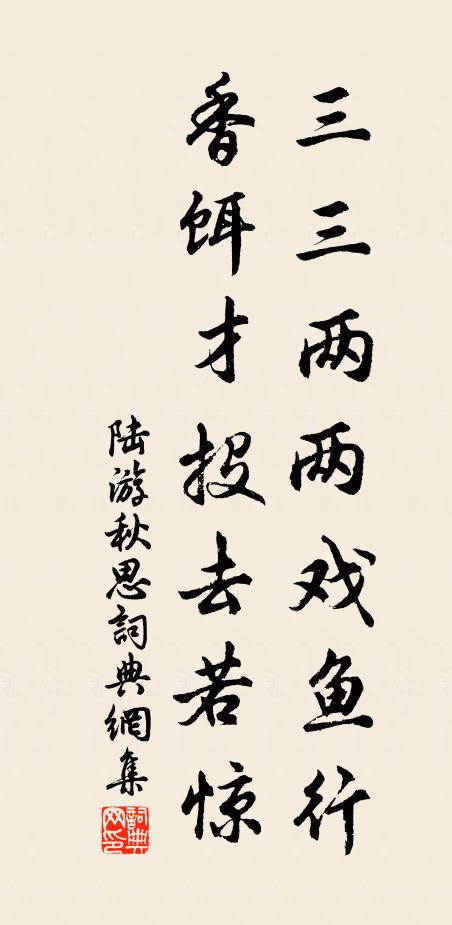 三三两两戏鱼行
香饵才投去若惊
陆游秋思詞典網集
詞典网印